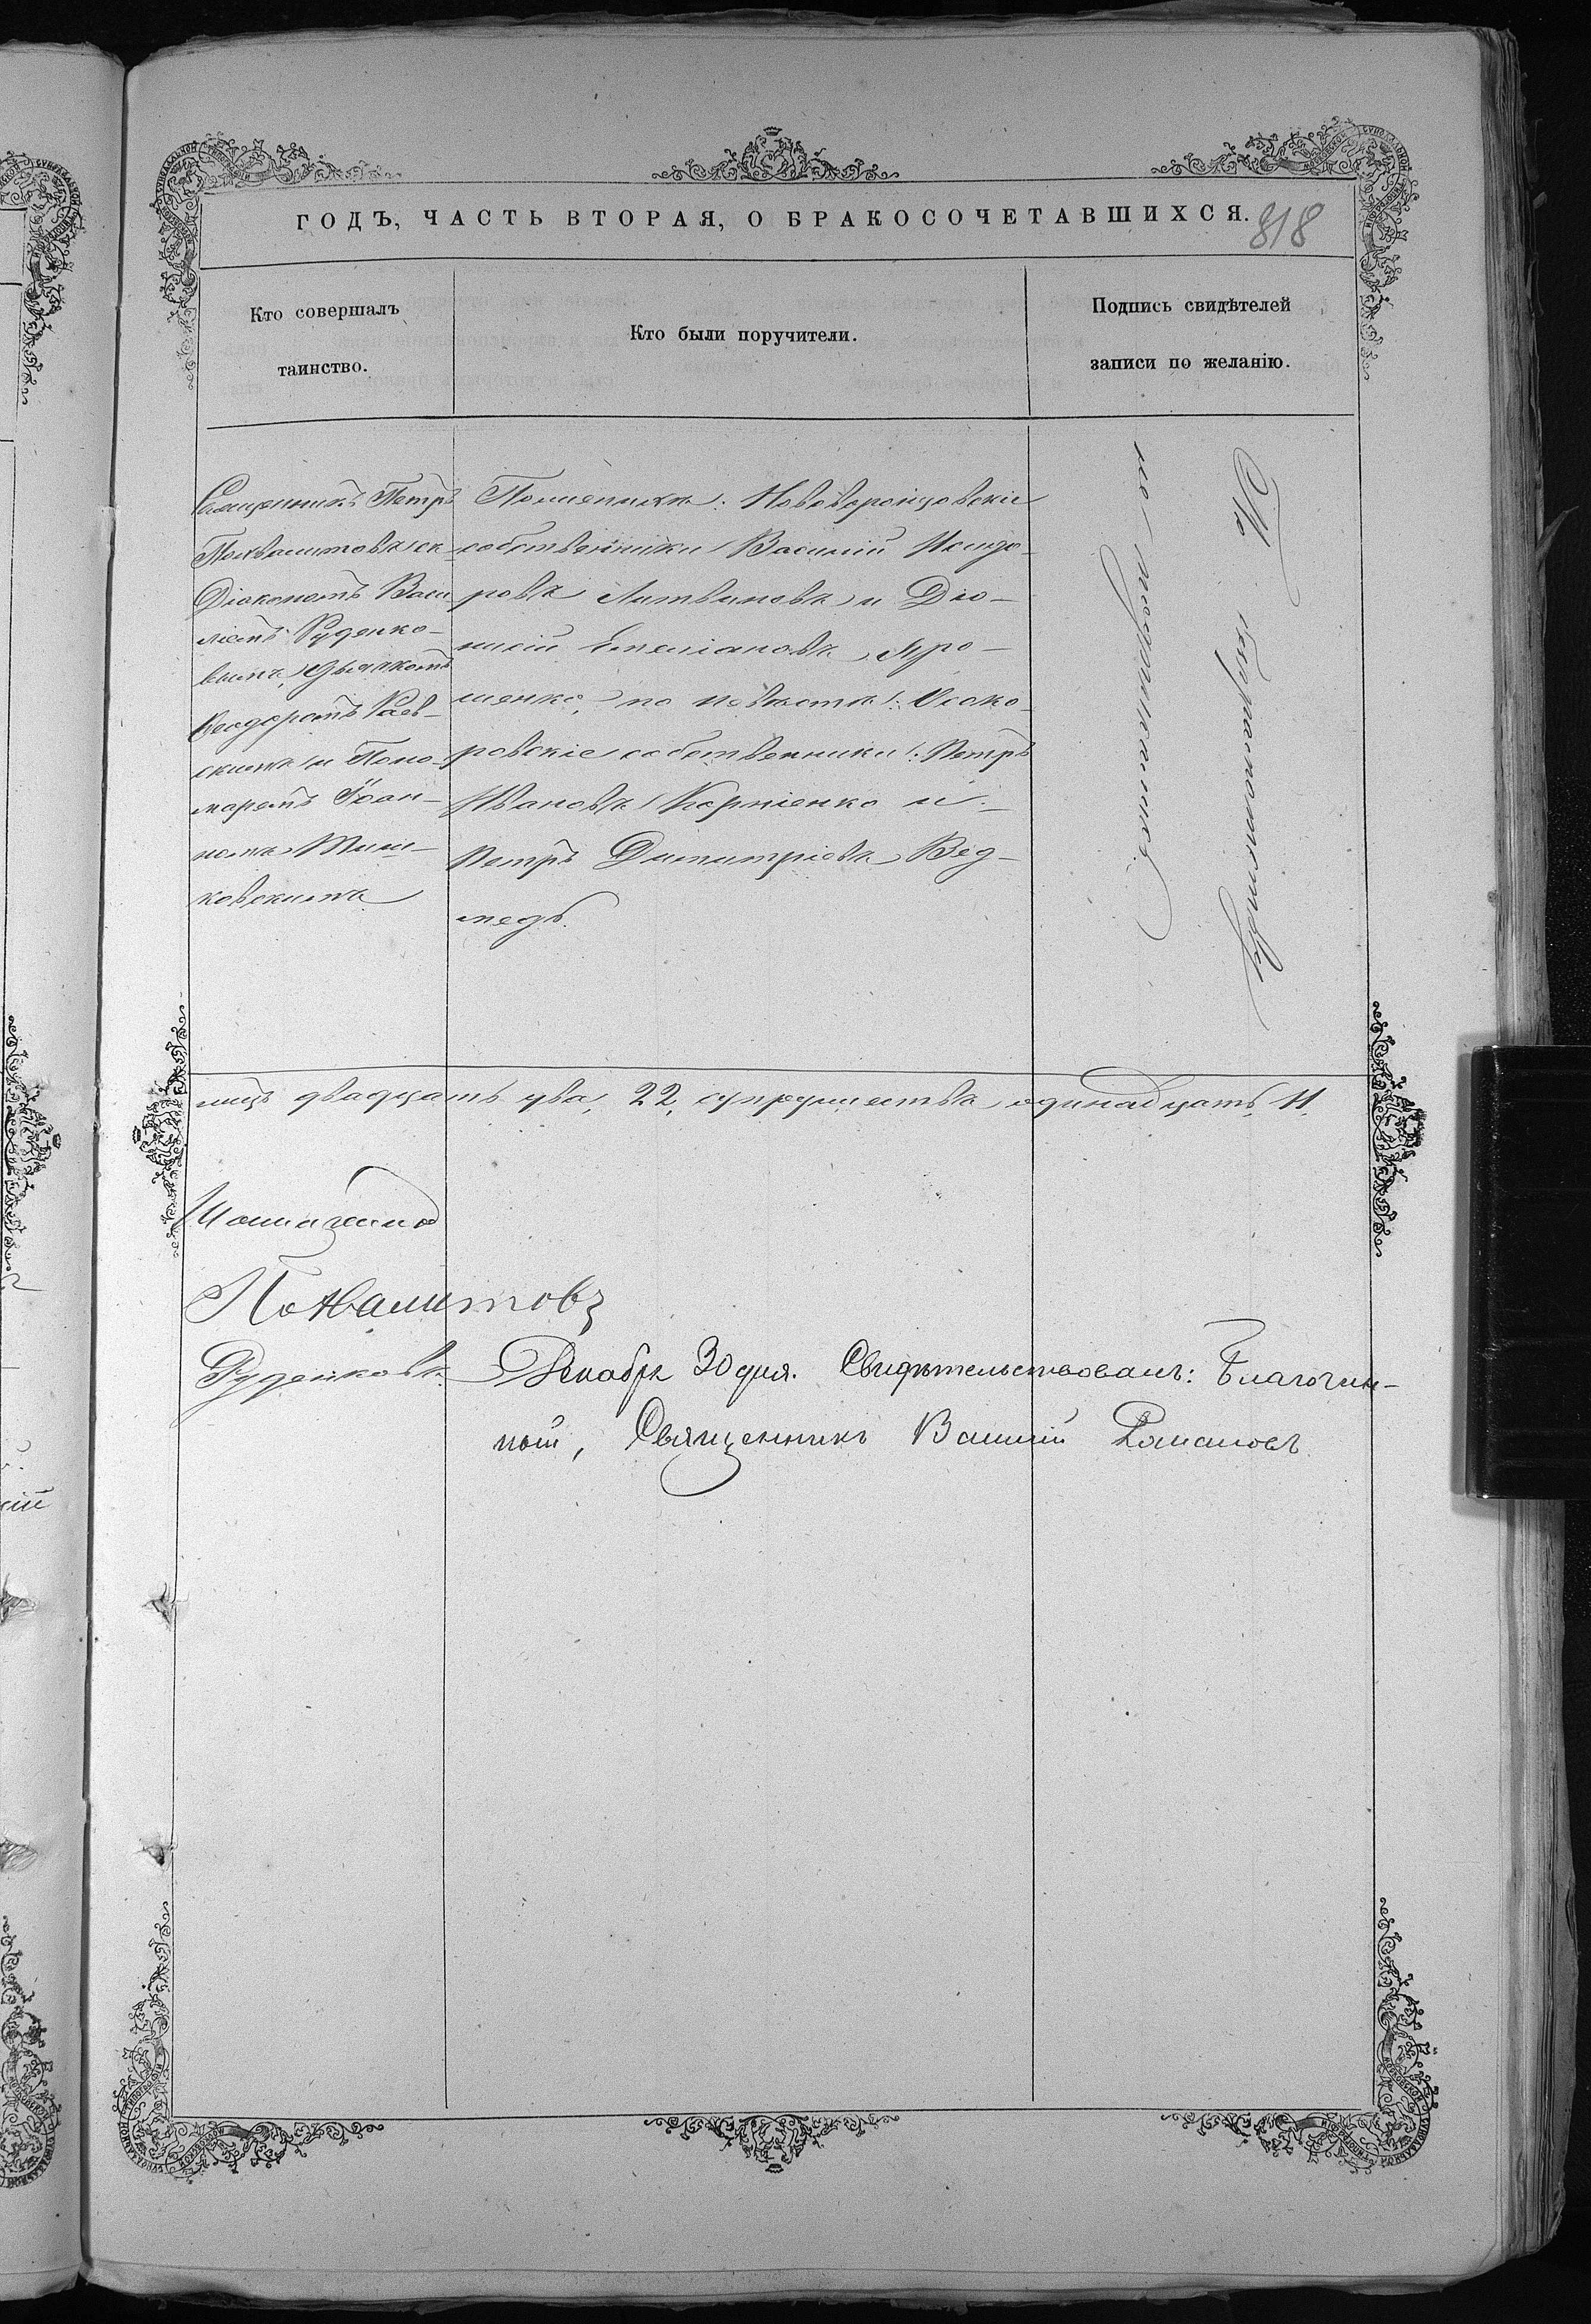 ГОДЪ, ЧАСТЬ ВТОРАЯ, О БРАКОСОЧЕТАВШИХСЯ.
818
Кто совершалъ
таинство.
Кто были поручители.
Подпись свидѣтелей
записи по желанію.
Священникъ Петръ
Похвалитовъ съ
Діакономъ Васи
ліемъ Руденко-
вымъ, Дьячкомъ
Ѳеодоромъ Раев-
скимъ и Поно-
маремъ Іоан-
номъ
ковскимъ
По женихѣ: Нововоронцовскіе
собственники Василій Исидо-
ровъ Литвиновъ и Дио-
нисій Емеліановъ Яро-
шенко, по невѣстѣ: Осоко-
ровскіе собственники: Петръ
Ивановъ Корніенко и
Петръ Димитріевъ Вед-
медь.
лицъ двадцать два, 22, супружествъ одинадцать 11.
Похвалитовъ
Руденковъ.
Декабря 30 дня. Свидѣтельствовалъ: Благочин-
ный, Священникъ Василій Романовъ